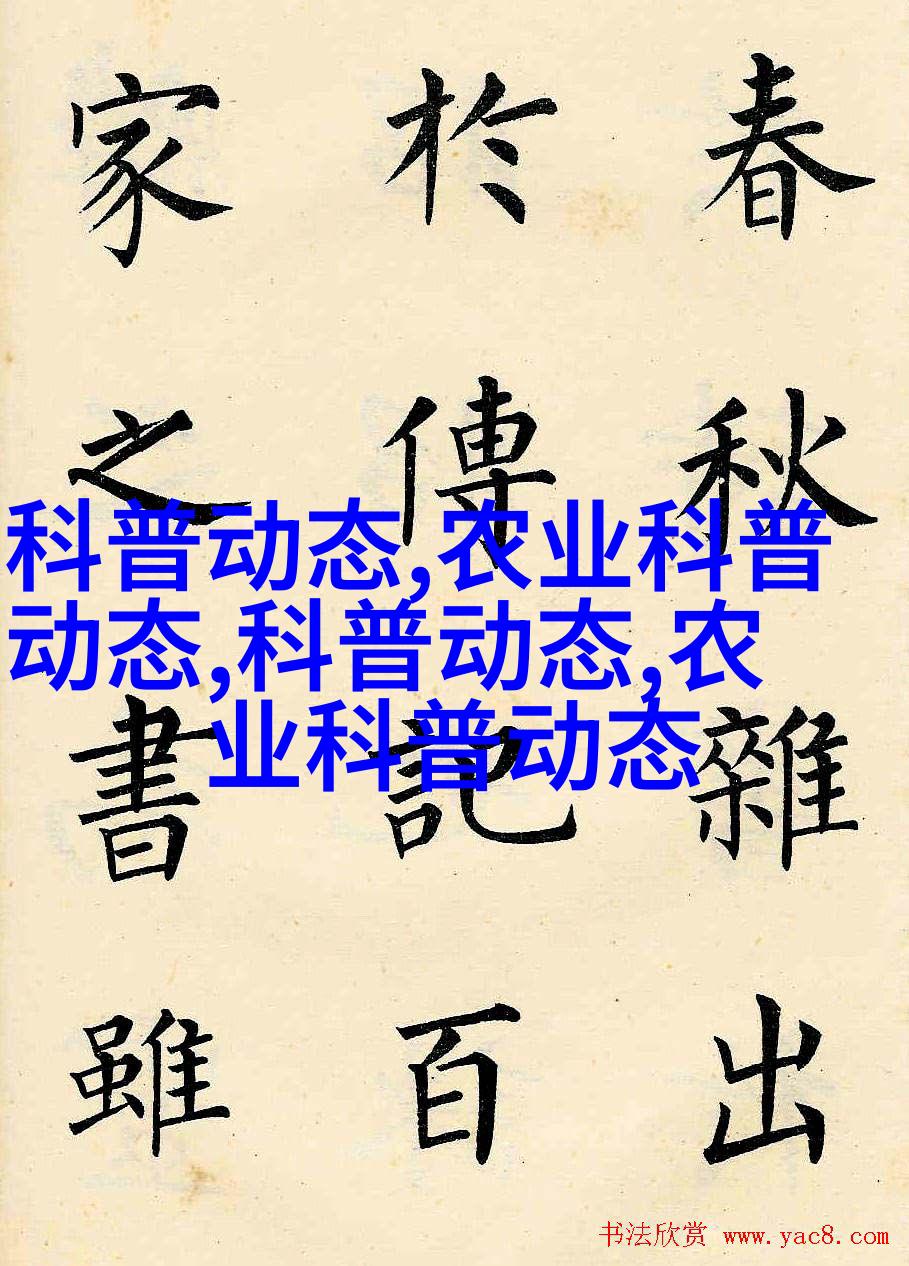 春秋雜出
於傳記百
家之書雖
科普动态,农业科普
动态,科普动态,农
业科普动态
书法欣赏 www.yac8.com